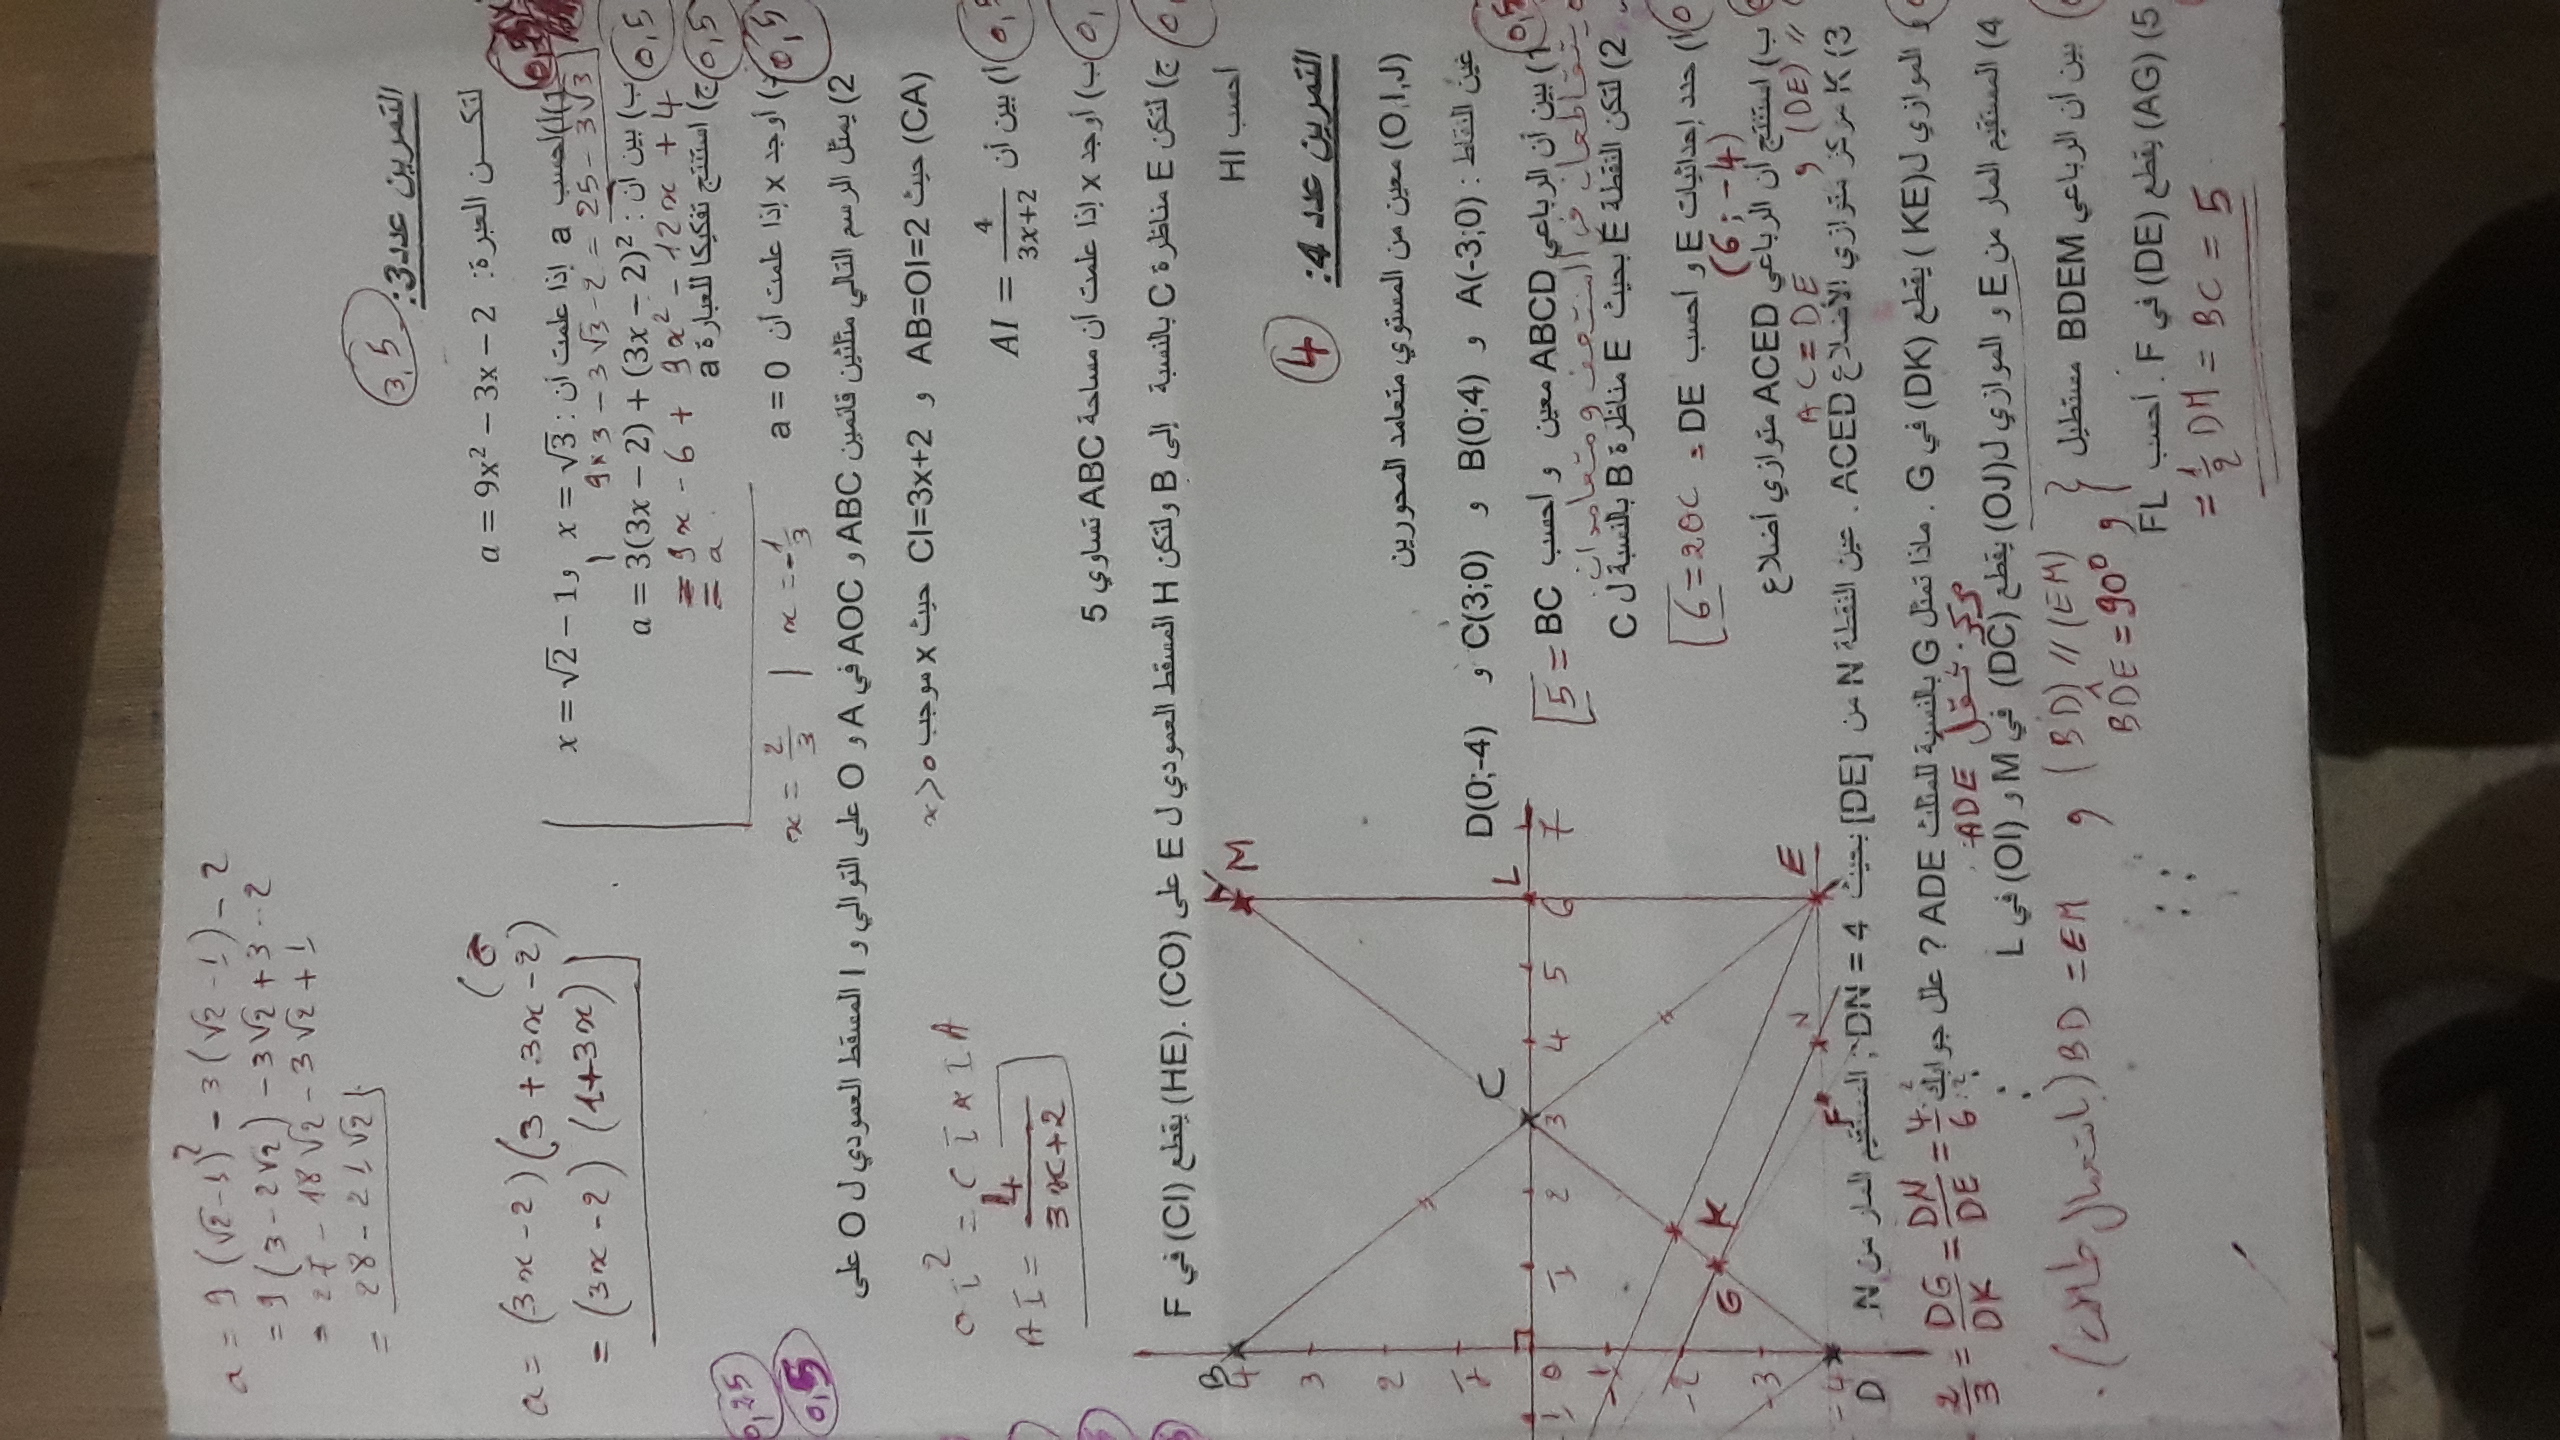 التمرين عدد3:
3,5
لتكن العبارة: a = 9x² − 3x − 2
1)أ)احسب a إذا علمت أن: x = √3 و x = √2 − 1
9×3 − 3√3 − 2 = 25 − 3√3
ب) بين أن: a = 3(3x − 2) + (3x − 2)²
0,5
= 9x − 6 + 9x² − 12x + 4
= a
ج) استنتج تفكيكا للعبارة a
0,5
أوجد x إذا علمت أن a = 0
0,5
x = 2/3 | x = −1/3
a = 9(√2−1)² − 3(√2−1) − 2
= 9(3 − 2√2) − 3√2 + 3 − 2
= 27 − 18√2 − 3√2 + 1
= 28 − 21√2
a = (3x − 2)(3 + 3x − 2)
= (3x − 2)(1+3x)
0,25
0,5
2) يمثل الرسم التالي مثلثين قائمين ABC و AOC في A و O على التوالي و I المسقط العمودي ل O على
(CA) حيث AB=OI=2 و CI=3x+2 حيث x موجب
x>0
أ) بين أن AI = 4/(3x+2)
OI² = CI × IA
AI = 4/(3x+2)
ب) أوجد x إذا علمت أن مساحة ABC تساوي 5
ج) لتكن E مناظرة C بالنسبة إلى B ولتكن H المسقط العمودي ل E على (CO). (HE) يقطع (CI) في F
احسب HI
التمرين عدد 4:
4
(O,I,J) معين من المستوي متعامد المحورين
عين النقاط: A(-3;0) و B(0;4) و C(3;0) و D(0;-4)
1) بين أن الرباعي ABCD معين و احسب BC
= 5
0,5
2) لتكن النقطة E بحيث E مناظرة B بالنسبة ل C
أ) حدد إحداثيات E و أحسب DE
= 2OC = 6
(6; −4)
ب) استنتج أن الرباعي ACED متوازي أضلاع
AC = DE و (DE) //
3) K مركز متوازي الأضلاع ACED. عين النقطة N من [DE] بحيث DN = 4; المستقيم المار من N
و الموازي ل(KE) يقطع (DK) في G. ماذا تمثل G بالنسبة للمثلث ADE ? علل جوابك
2/3 = DG/DK = DN/DE = 4/6
ADE
4) المستقيم المار من E و الموازي ل(OJ) يقطع (DC) في M و (OI) في L
بين أن الرباعي BDEM مستطيل
BD = EM و (BD) // (EM) و BDE = 90°
5) (AG) يقطع (DE) في F. أحسب FL
= 1/2 DM = BC = 5
B
4
3
2
1
0
−1
−2
−3
−4
D
1
2
3
4
5
6
7
C
L
M
E
N
F
K
G